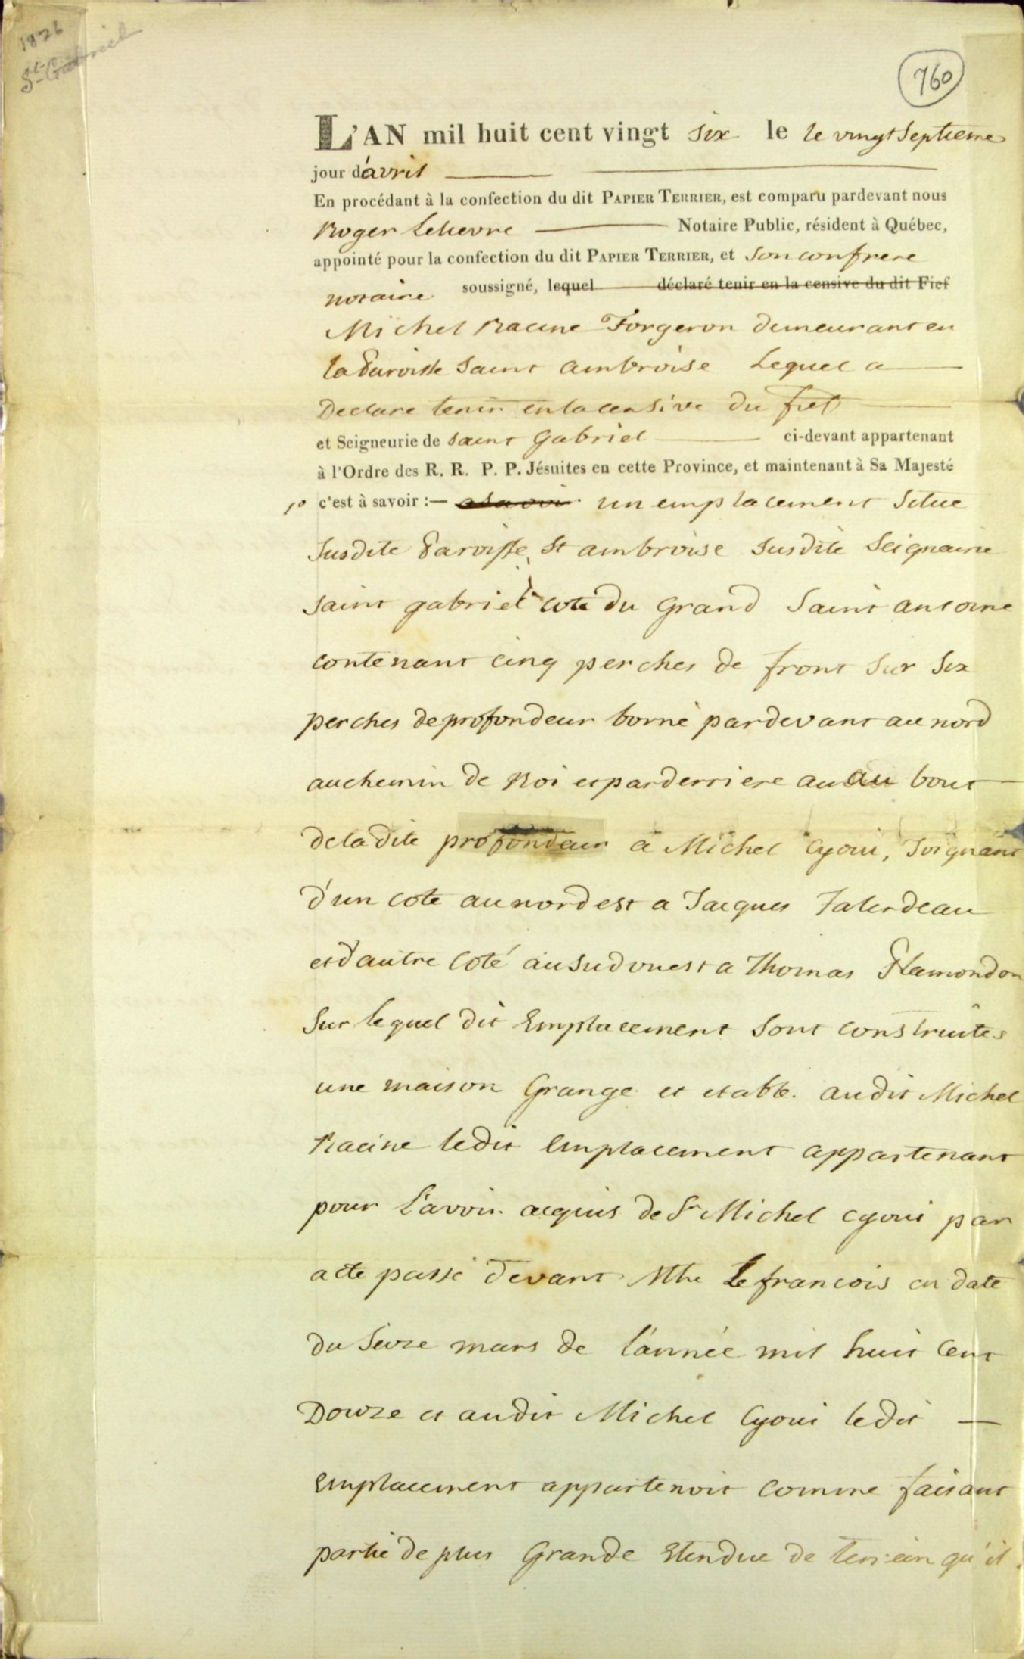 1826
St Gabriel
760
L'AN mil huit cent vingt six le le vingt septieme
jour d'avril
En procédant à la confection du dit PAPIER TERRIER, est comparu pardevant nous
Roger Lelievre Notaire Public, résident à Québec,
appointé pour la confection du dit PAPIER TERRIER, et son confrere
notaire soussigné, lequel déclaré tenir en la censive du dit Fief
Michel Racine Forgeron demeurant en
la Paroisse Saint Ambroise Lequel a
Declare tenir en la censive du fief
et Seigneurie de Saint Gabriel ci-devant appartenant
à l'Ordre des R. R. P. P. Jésuites en cette Province, et maintenant à Sa Majesté
1o c'est à savoir :— a savoir un emplacement situe
susdite Paroisse St ambroise susdite Seigneurie
saint gabriel cote du Grand Saint antoine
contenant cinq perches de front sur six
perches de profondeur borné pardevant au nord
au chemin de Roi et par derriere au au bout
de la dite profondeur a Michel Cyoui, Joignant
d'un cote au nord est a Jacques Falerdeau
et d'autre coté au sud ouest a Thomas Plamondon
Sur lequel dit Emplacement sont construites
une maison Grange et etable. au dit Michel
Racine le dit Emplacement appartenant
pour L'avoir acquis de Sr Michel Cyoui par
acte passé devant Mthe Lefrancois en date
du seize mars de l'année mil huit cent
Douze et au dit Michel Cyoui le dit —
Emplacement appartenoit comme faisant
partie de plus Grande Etendue de terrein qu'il